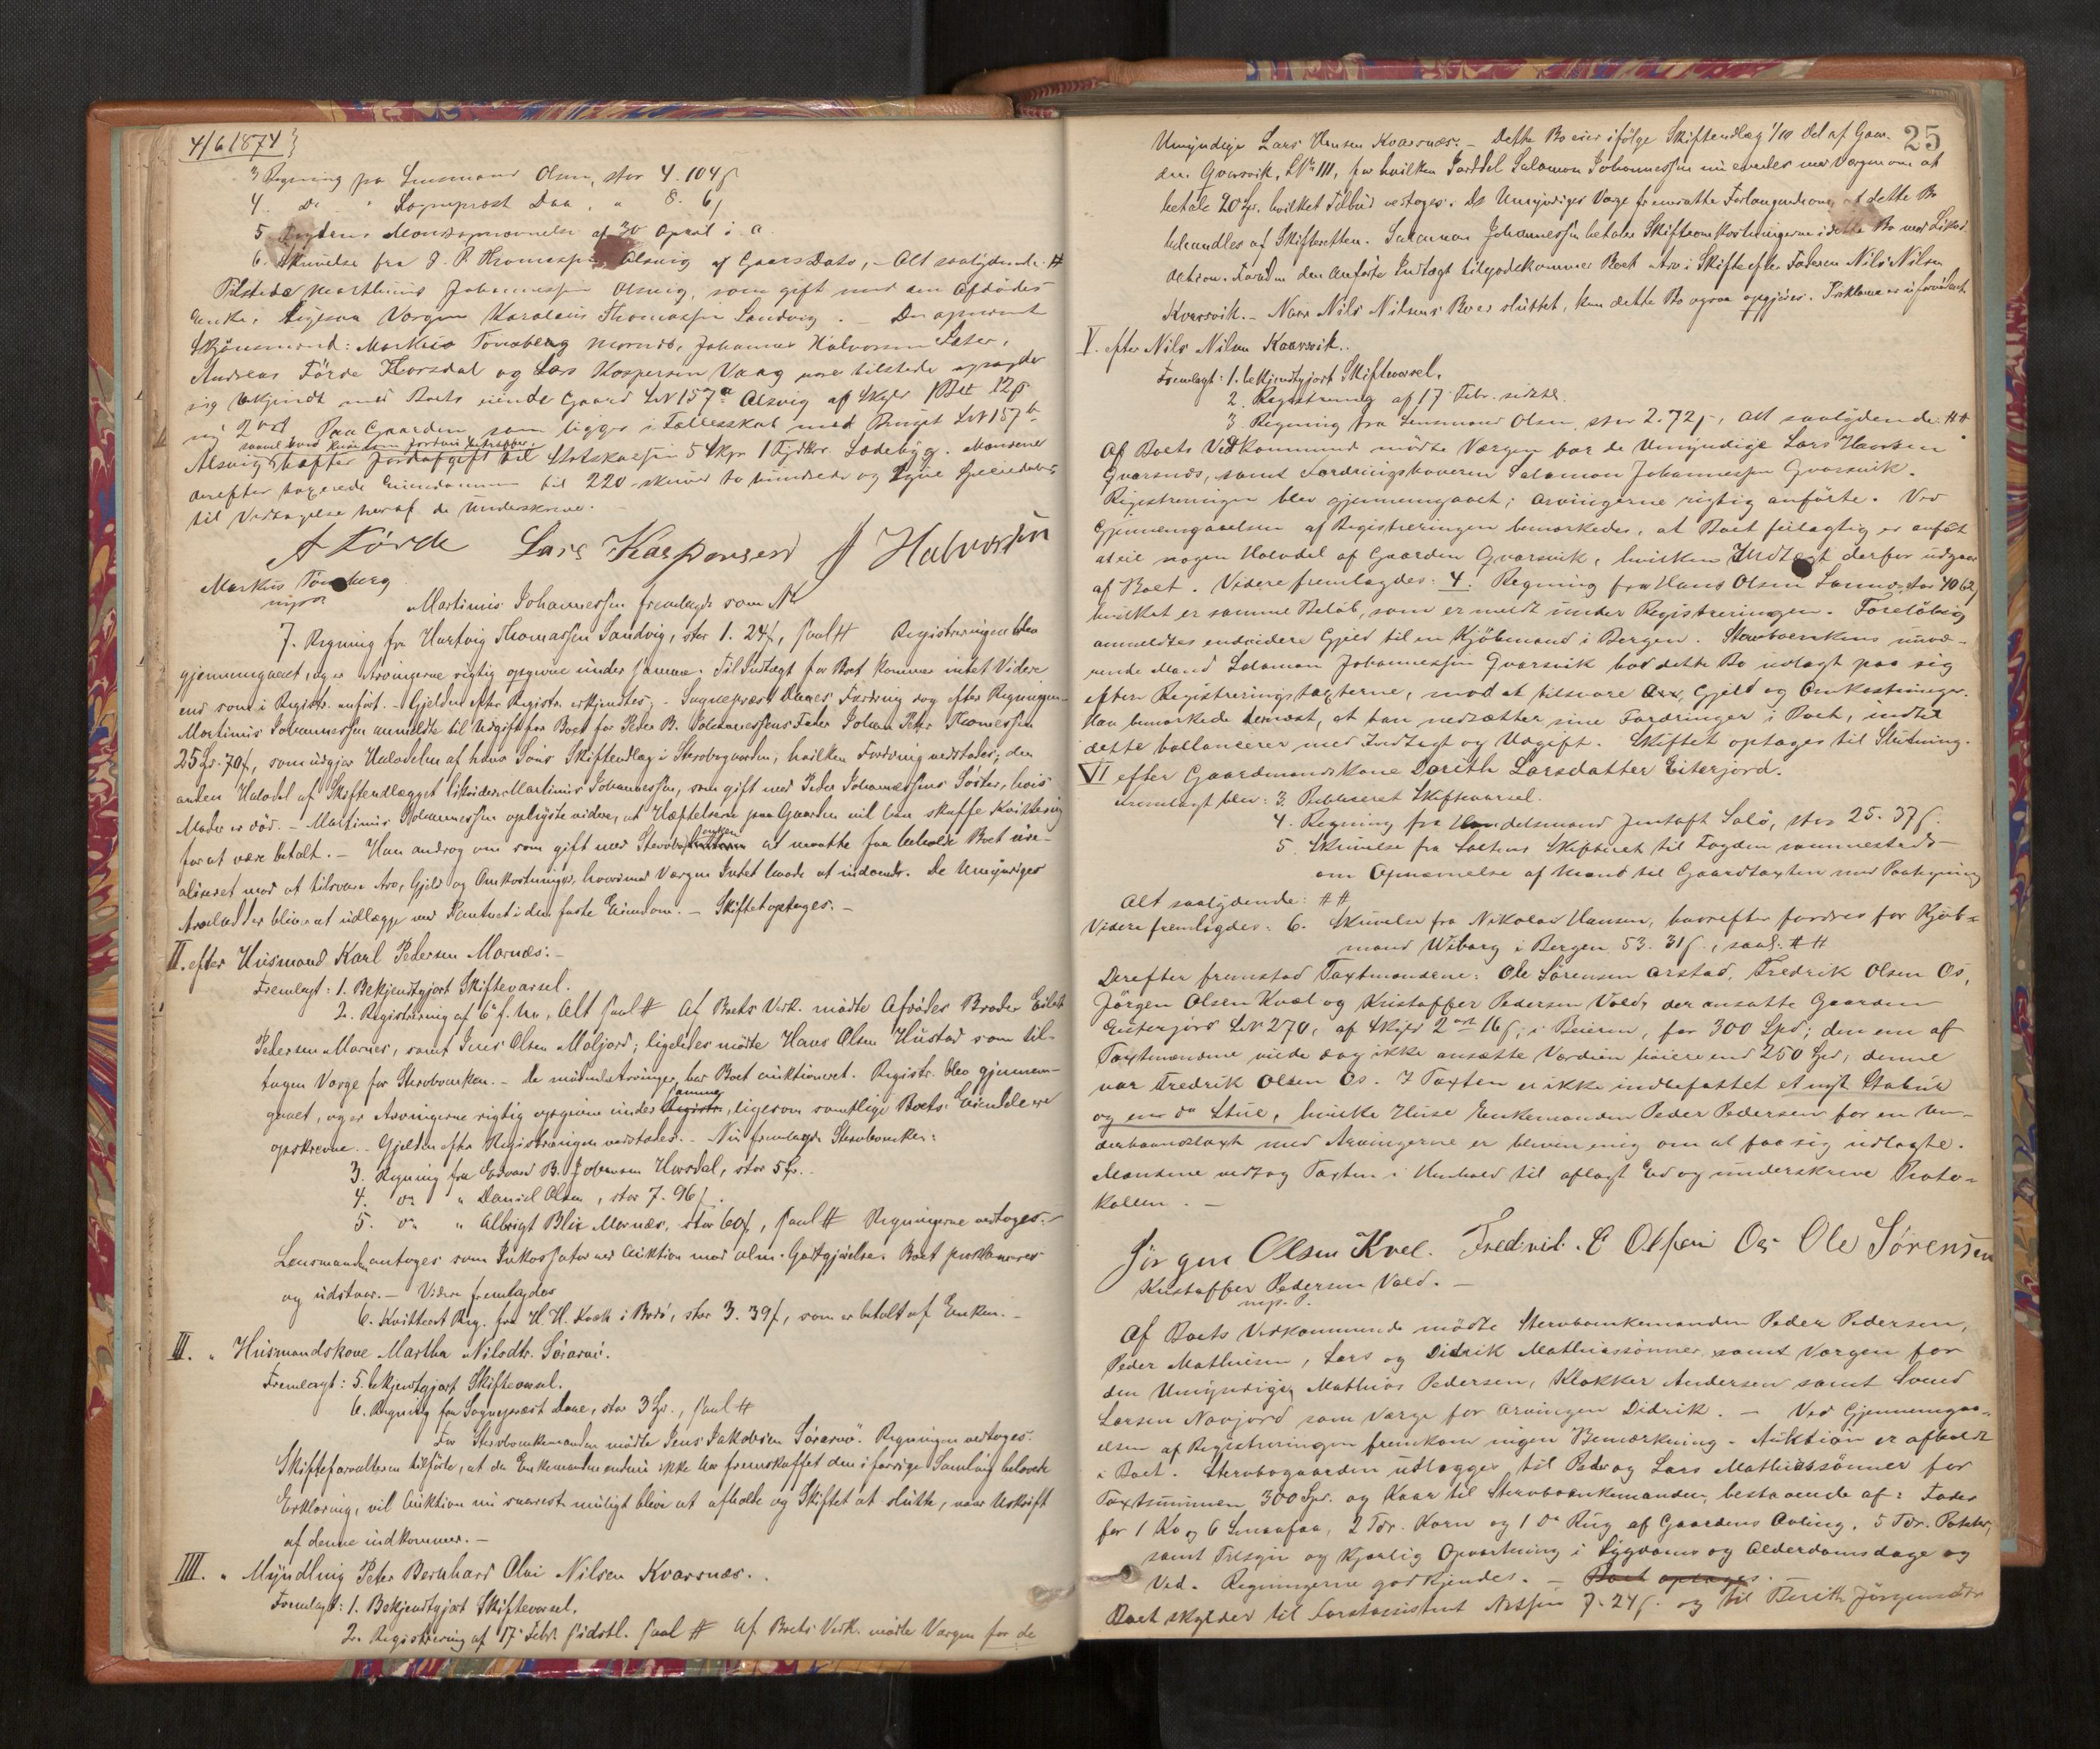 4/6 1874
3 Regning fra Lensmand Olsen, stor 4. 104 ſ
4. do " Sogneprest Daa, " 8. 6 ſ
5 Fogdens Mandsopnævnelse af 30 April i. a.
6. Skrivelse fra J. P. Thomassen Alsvig af Gaars Dato, - Alt saalydende #
Tilstede Marthinus Johannessen Alsvig, som gift med den Afdødes
Enke, ligesaa Vergen Karolius Thomassen Sandvig. - De opnævnte
Skjønsmænd: Markus Tönsberg Mornæs, Johannes Halvorsen Sæter,
Andreas Förde Horsdal og Lars Kaspersen Vaag vare tilstede opsagde
sig bekjendt med Boets eiende Gaard LN 157a Alsvig af Skyld 12 ſ
ny 2 ort. Paa Gaarden som ligger i Fællesskab med Bruget LN 157b
Alsvig hæfter Jordafgift til Statskassen 54 skpr 1 Tydkr. Ladebyg. Mændene
derefter taxerede Eiendommen til 220 skriver to hundrede og tyve Speciedaler
til Vedtagelse heraf de Underskrive.
A Förde Lars Kaspersen J Halvorsen
Markus Tönsberg
mpp
Martinus Johannessen fremlagde som No
7. Regning fra Hartvig Thomassen Sandvig, stor 1. 24 ſ, saal # Registreringen blev
gjennemgaaet, og er Arvingerne rigtig opgivne under samme. Til Indtægt for Boet kommer intet Videre
end som i Registr. anført. - Gjelden efter Registr. erkjendtes. - Sogneprest Daaes Fordring dog efter Regningen.
Martinus Johannessen anmeldte til Udgift for Boet for Peder B. Johannessens Fader Johan Peter Thomessen
25 Spd. 70 ſ, som udgjør Halvdelen af hans Søns Skifteudlæg i Stervbogaarden, hvilken Fordring vedstaaes; den
anden Halvdel af Skifteudlægget likviderer Martinus Johannessen, som gift med Peder Johannessens Søster, hvis
Moder er død. - Martinus Johannessen oplyste videre, at Hæftelserne paa Gaarden vil han skaffe Kvittering
for at være betalt. - Han androg om som gift med Stervboenken at maatte faa beholde Boet ure-
aliseret mod at tilsvare Arv, Gjeld og Omkostninger, hvorimod Værgen Intet havde at indvende. De Umyndiges
Arvelodder bliver at udlægge med Panteret i den faste Eiendom. - Skiftet optages. -
II. efter Husmand Karl Pedersen Mornæs: -
Fremlagt: 1. Bekjendtgjort Skiftevarsel.
2. Registrering af 6te f. M., Alt saal # Af Boets Vedk. mødte Afdødes Broder Eilert
Pedersen Mornes, samt Jens Olsen Maljord; ligeledes mødte Hans Olsen Hustad som til-
tagen Verge for Stervboenken. - De mødende Arvinger har Boet auktioneret. Registr. blev gjennem-
gaaet, og er Arvingerne rigtig opgivne under samme, ligesom samtlige Boets Eiendele ere
opskrevne. - Gjelden efter Registreringen vedstodes. - Nu fremlagde Stervboenken:
3. Regning fra Edvard B. Johansen Horsdal, stor 5 Spd.
4. do " Daniel Olsen, stor 7. 96 ſ.
5. do " Albrigt Blix Mornæs, stor 60 ſ, saal # Regningerne vedtoges. -
Lensmanden antoges som Inkassator ved Auktion mod alm. Godtgjørelse. Boet proklameres
og udstaar. - Videre fremlagdes
6. Kvitteret Reg. fra H. H. Koch i Bodø, stor 3. 39 ſ, som er betalt af Enken. -
III. " Husmandskone Martha Nilsdtr. Sörarnö.
Fremlagt: 5. bekjendtgjort Skiftevarsel.
6. Regning fra Sogneprest Daae, stor 3 Spd., saal #
For Stervboenkemanden mødte Jens Jakobsen Sörarnö. Regningen vedtoges.
Skifteforvalteren tilførte, at da Enkemanden endnu ikke har fremskaffet den i forrige Samling belovede
Erklæring, vil Auktion nu snarest muligt blive at afholde og Skiftet at slutte, naar Udskrift
af denne indkommer. -
IIII. " Myndling Peter Bernhard Olai Nilsen Kvarsnæs. .
Fremlagt: 1. Bekjendtgjort Skiftevarsel.
2. Registrering af 17 Febr. sidstl. saal # Af Boets Vedk. mødte Værgen for de
25
Umyndige Lars Hansen Kvarsnæs. - Dette Bo eier ifølge Skifteudlæg 1/10 Del af Gaar-
den Qvarsvik, LNr 111, for hvilken Jorddel Salamon Johannessen nu enedes med Værgen om at
betale 20 Spd. hvilket Tilbud vedtoges. De Umyndiges Værge fremsatte Forlangende om, at dette Bo
behandles af Skifteretten. Salamon Johannessen betaler Skifteomkostningerne i dette Bo med Likvi-
dation. Foruden den anførte Indtægt tilgodekommer Boet Arv i Skifte efter Faderen Nils Nilsen
Kvarsvik. - Naar Nils Nilsens Bo er sluttet, kan dette Bo ogsaa opgjøres. Proklama er ufornødent.
V. efter Nils Nilsen Kvarsvik.
Fremlagt: 1. bekjendtgjort Skiftevarsel.
2. Registrering af 17 Febr. sidstl.
3. Regning fra Lensmand Olsen, stor 2. 72 ſ, Alt saalydende: ##
Af Boets Vedkommende mødte Værgen for de Umyndige Lars Hansen
Qvarsnæs, samt Fordringshaveren Salamon Johannessen Qvarsvik.
Registreringen blev gjennemgaaet; Arvingerne rigtig anførte. Ved
Gjennemgaaelsen af Registreringen bemærkedes, at Boet feilagtig er anført
at eie nogen Halvdel af Gaarden Qvarsvik, hvilken Indtægt derfor udgaar
af Boet. Videre fremlagdes: 4. Regning fra Hans Olsen stor 40. 62 ſ
hvilket er samme Beløb, som er meldt under Registreringen. Foreløbig
anmeldtes endvidere Gjeld til en Kjöbmand i Bergen. Stervboenkens nuvæ-
rende Mand Salamon Johannessen Qvarsvik bad dette Bo udlagt paa sig
efter Registreringstaxterne, mod at tilsvare Arv, Gjeld og Omkostninger.
Han bemærkede dernæst, at han nedsætter sine Fordringer i Boet, indtil
dette ballancerer med Indtægt og Udgift. Skiftet optages til Slutning.
VI efter Gaardmandskone Dorith Larsdatter Eiterjord.
Fremlagt blev: 3. Publiceret Skiftevarsel.
4. Regning fra Handelsmand Jentoft Salö, stor 25. 37 ſ.
5. Skrivelse fra Saltens Skifteret til Fogden sammesteds
om Opnævnelse af Mænd til Gaardtaxten med Paategning
Alt saalydende: ##
Videre fremlagdes: 6. Skrivelse fra Nikolai Hansen, hvorefter fordres for Kjøb-
mand Wiborg i Bergen 53. 31 ſ., saal. ##
Derefter fremstod Taxtmændene: Ole Sörensen Arstad, Fredrik Olsen Os,
Jörgen Olsen Kvæl og Kristoffer Pedersen Vold, der ansatte Gaarden
Eiterjord LN 270, af Skyld 2 ort 16 ſ, i Beieren, for 300 Spd; den ene af
Taxtmændene vilde dog ikke ansætte Værdien høiere end 250 Spd, denne
var Fredrik Olsen Os. I Taxten er ikke indbefattet et nyt Stabur
og en do Stue, hvilke Huse Enkemanden Peder Pedersen for en Un-
derhaandstaxt med Arvingerne er bleven enig om at faa sig udlagte.
Mændene vedtog Taxten i Henhold til aflagt Ed og underskreve Proto-
kollen. -
Jörgen Olsen Kvel. Fredrik. E Olsen Os Ole Sörensen
Kristoffer Pedersen Vold. -
m. p. P.
Af Boets Vedkommende mødte Stervboenkemanden Peder Pedersen,
Peder Mathisen, Lars og Didrik Mathiassønner, samt Værgen for
den Umyndige Mathias Pedersen, Klokker Andersen samt Svend
Larsen Navjord som Værge for Arvingen Didrik. - Ved Gjennemgaa-
elsen af Registreringen fremkom ingen Bemærkning - Auktion er afholdt
i Boet. Stervbogaarden udlægges til Peder og Lars Mathiassønner for
Taxtsummen 300 Spd. og Kaar til Stervboenkemanden, bestaaende af: Foder
for 1 Ko og 6 Smaafæ, 2 Tdr. Korn og 1 do Rug af Gaardens Avling, 5 Tdr. Poteter,
samt Tilsyn og kjærlig Opvartning i Sygdoms og Alderdomsdage og
Ved. Regningerne godkjendes. - Boet optages.
Boet skylder til Forstassistent 7. 24 ſ. og til Berith Jörgensdtr